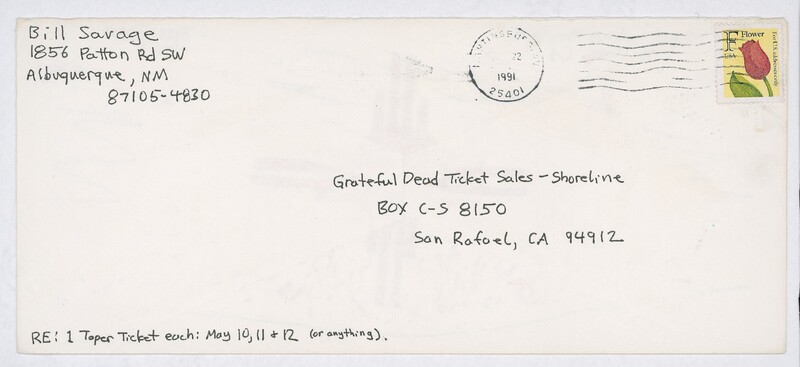 Bill Savage
1856 Patton Rd SW
Albuquerque, NM
87105-4830
22
1991
25401
F Flower
USA
For U.S. addresses only
Grateful Dead Ticket Sales - Shoreline
BOX C-S 8150
San Rafael, CA 94912
RE: 1 Taper Ticket each: May 10, 11 & 12 (or anything).